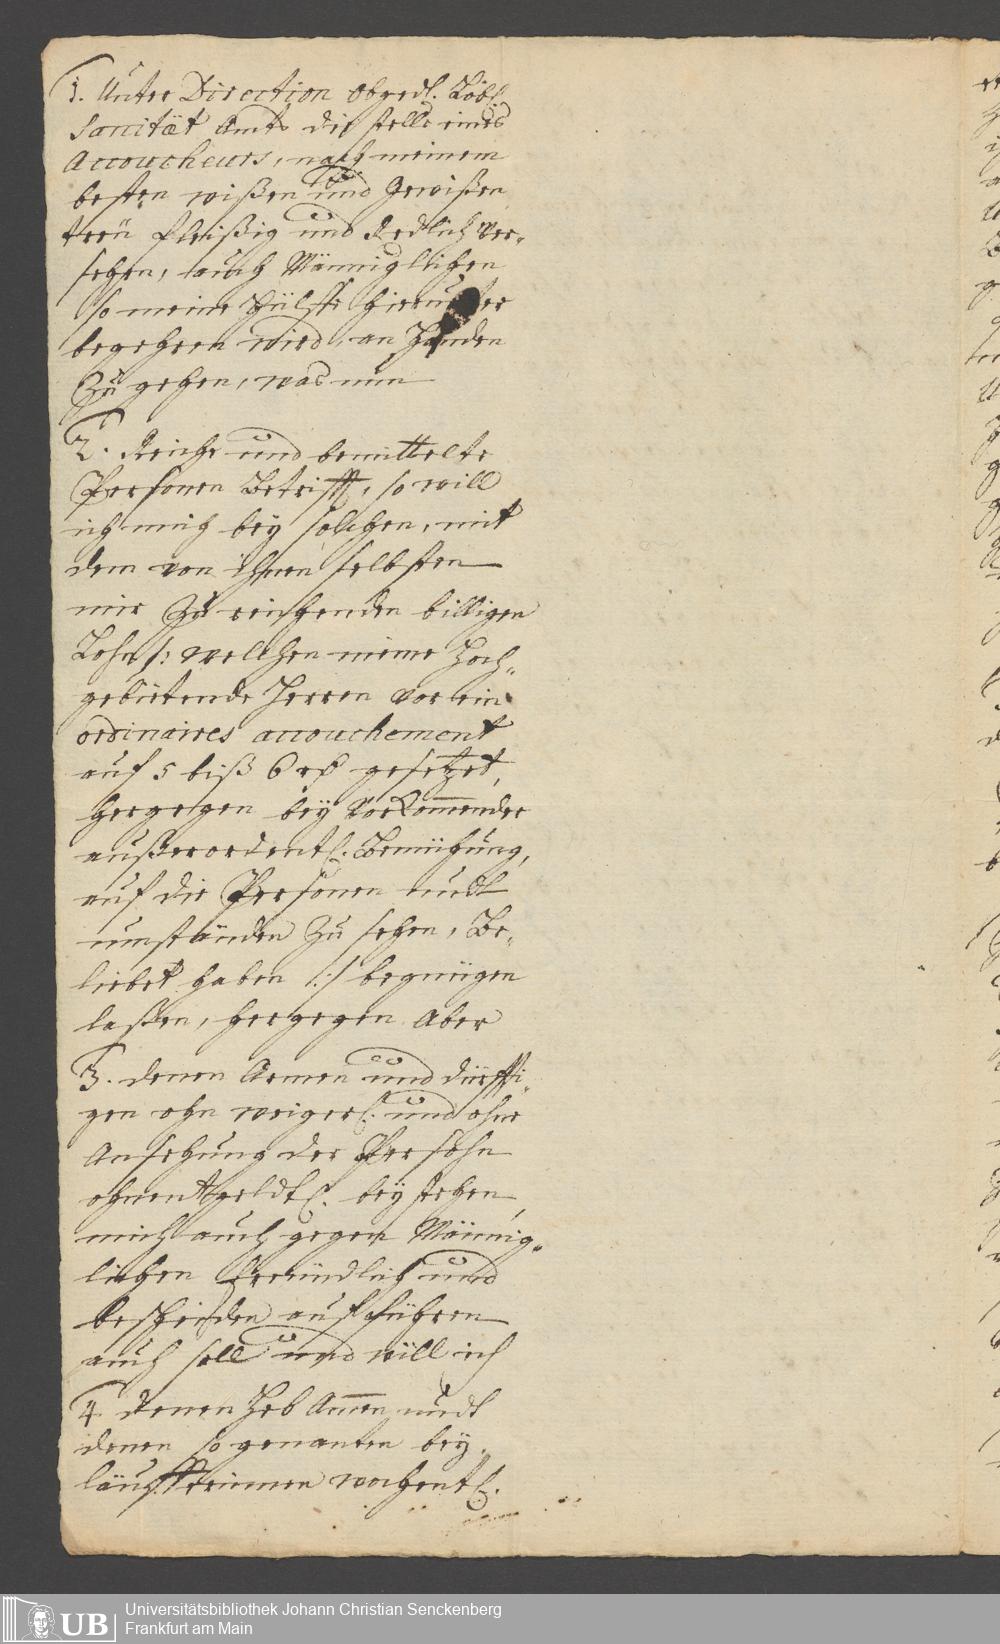 1. Unter Direction obgedl. Löbl.
Sanität Amts die stelle eines
Accoucheurs, nach meinem
besten wißen und Gewißen
treü fleißig und Redlich ver„
sehen, auch Männiglichen
so meine Hülffe hierunter
begehren wird, an Handen
Zu gehen, was nun
2. Reiche und bemittelte
Persohnen Betrifft, so will
ich mich bey solchen, mit
dem von ihnen selbsten
mir Zu reichenden billigen
Lohn /: welchen meine Hoch„
gebietende Herren vor ein
ordinaires accouchement
auf 5 biß 6 rß gesetzet,
hergegen bey Vorkommender
außerordentl. Bemühung,
auf die Persohnen undt
umständen Zu sehen, Be„
liebet haben :/ begnügen
laßen, hergegen Aber
3. denen Armen und dürffti„
gen ohn weigerl. und ohne
Ansehung der Persohn
ohnentgeldtl. bey stehen,
mich auch gegen Männig„
lichen freündlich und
bescheiden aufführen
auch soll und will ich
4. denen Heb Ammen undt
denen so genanten bey„
läufferinnen wochentl.
Universitätsbibliothek Johann Christian Senckenberg
Frankfurt am Main
UB